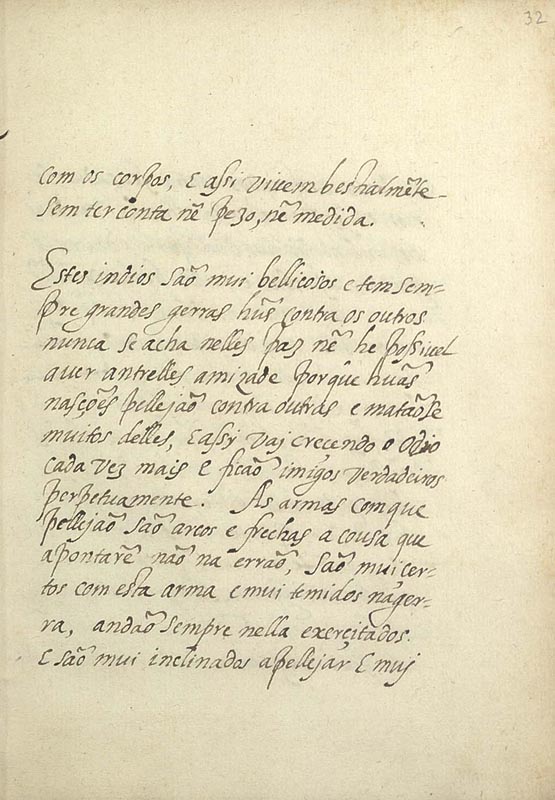 32
com os corpos, E assi vivem bestialmẽte
sem ter conta nẽ pezo, nẽ medida.
Estes indios são mui bellicosos e tem sem-
pre grandes gerras hũs contra os outros
nunca se acha nelles paz nẽ he possivel
aver antrelles amizade porque huãs
nasções pellejão contra outras e matãose
muitos delles, E assy vaj crecendo o odio
cada vez mais E ficão imigos verdadeiros
perpetuamente. As armas com que
pellejão são arcos e frechas a cousa que
apontarẽ não na errão, são mui cer-
tos com esta arma e mui temidos na ger-
ra, andão sempre nella exerçitados.
E são mui inclinados a pellejar E muj